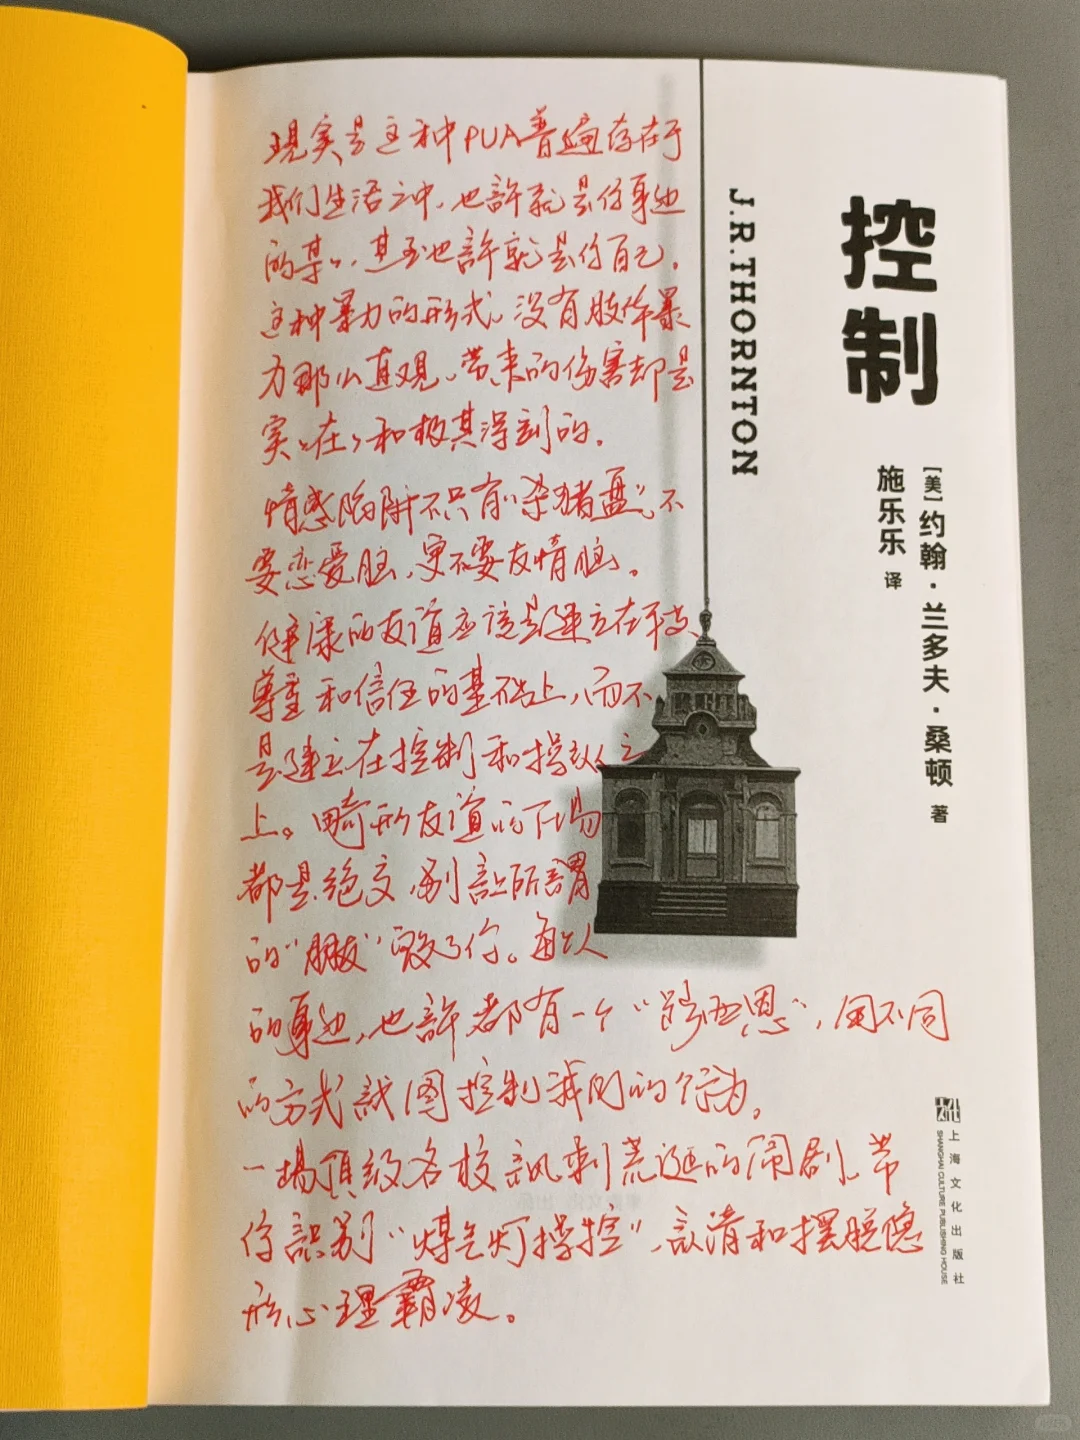 現实是这种PUA普遍存在于
我们生活之中,也許就是你身边
的某人,甚至也許就是你自己。
这种暴力的形式,没有肢体暴
力那么直观,带来的伤害却是
实实在在和极其深刻的。
情感陷阱不只有“杀猪盘”,不
要恋爱脑,更不要友情脑。
健康的友谊应该是建立在平等、
尊重和信任的基础上,而不
是建立在控制和操纵之
上。畸形友谊的下场
都是绝交,别让所謂
的“朋友”毁了你。每个人
的身边,也許都有一个“路西恩”,用不同
的方式試图控制我们的行为。
一場頂级名校讽刺荒诞的闹剧,带
你識别“煤气灯操控”,认清和摆脱隐
形心理霸凌。
J.R.THORNTON
控制
[美]约翰·兰多夫·桑顿 著
施乐乐 译
文化
上海文化出版社
SHANGHAI CULTURE PUBLISHING HOUSE